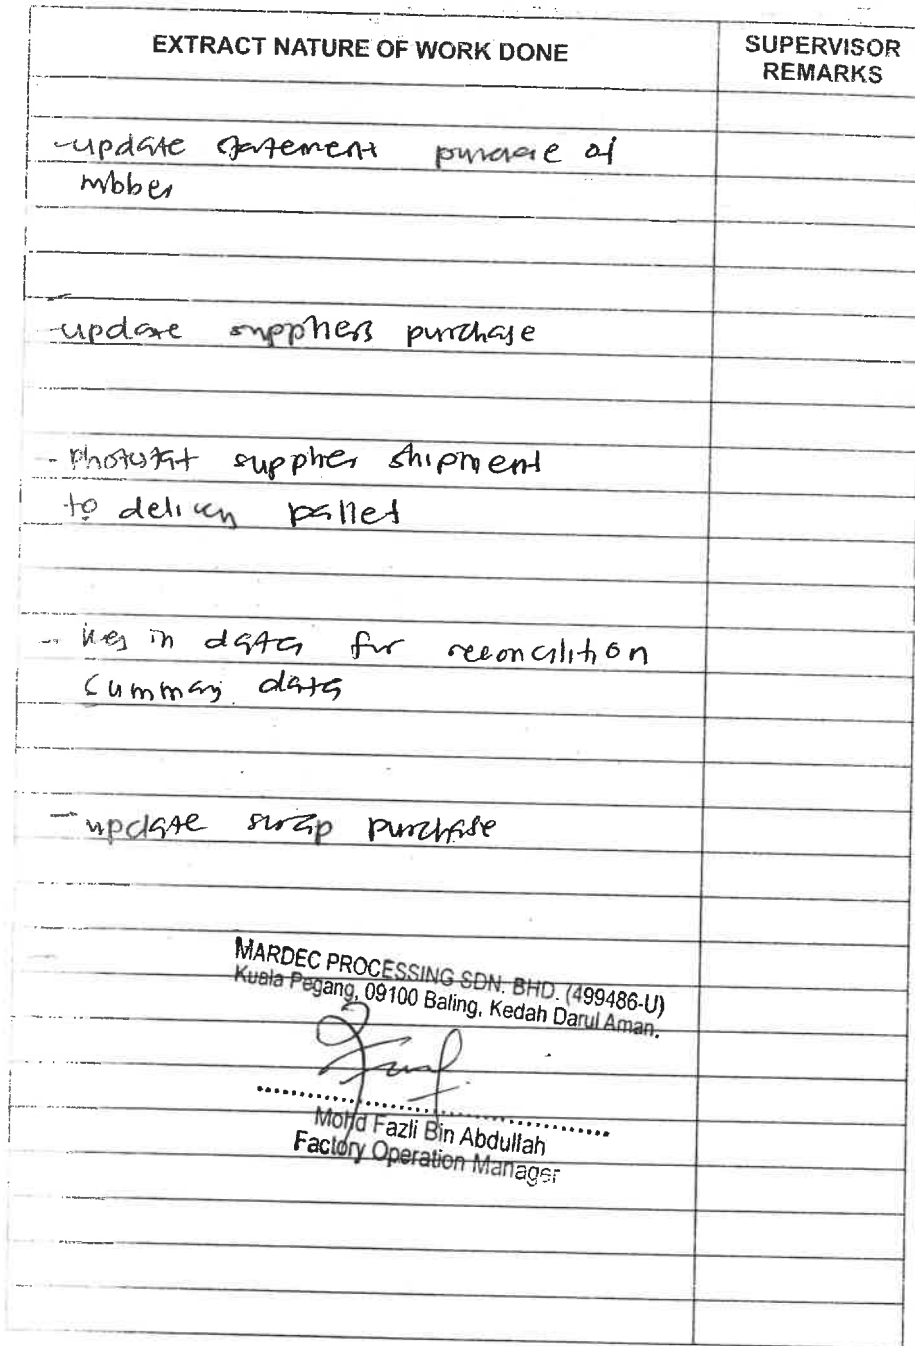 EXTRACT NATURE OF WORK DONE
SUPERVISOR
REMARKS
-update statement purchase of
rubber
-update suppliers purchase
- photostat supplier shipment
to delivery pallet
- key in data for reconcilition
summary data
- update scrap purchase
MARDEC PROCESSING SDN. BHD. (499486-U)
Kuala Pegang, 09100 Baling, Kedah Darul Aman.
Mohd Fazli Bin Abdullah
Factory Operation Manager